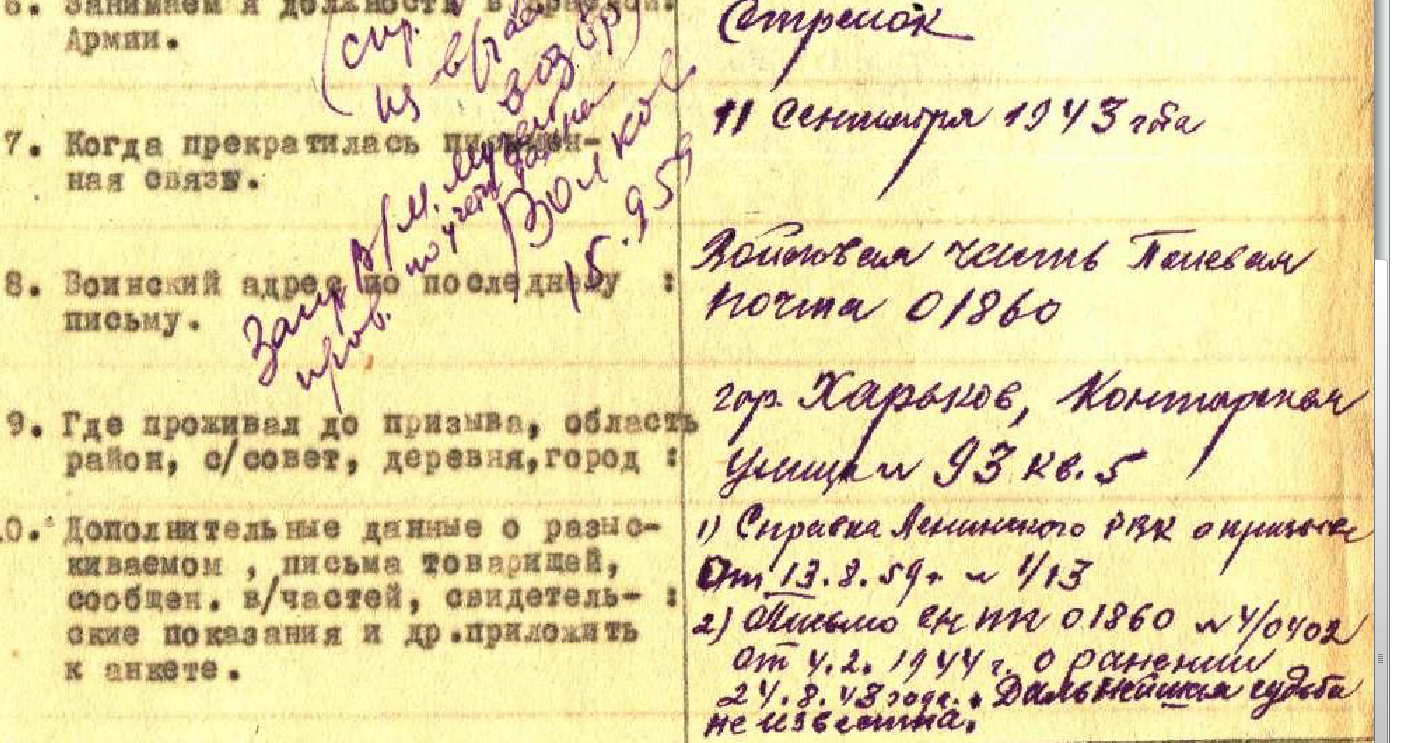 6. Занимаем я должность в Красной
Армии.
Стрелок
7. Когда прекратилась письмен-
ная связь.
11 Сентября 1943 года
8. Воинский адрес по последнему :
письму.
Войсковая часть Полевая
почта 01860
9. Где проживал до призыва, область
район, с/совет, деревня, город :
гор. Харьков, Конторская
улица № 93 кв. 5
10. Дополнительные данные о разыс-
киваемом , письма товарищей,
сообщен. в/частей, свидетель- :
ские показания и др. приложить
к анкете.
1) Справка Ленинского РВК о призыве
От 13.8.59г № 1/13
2) Письмо ПП 01860 № 4/0402
от 4.2. 1944 г. о ранении
24.8.43 года. Дальнейшая судьба
не известна.
(спр.
из в/
Запр
Волков
15. 9 59